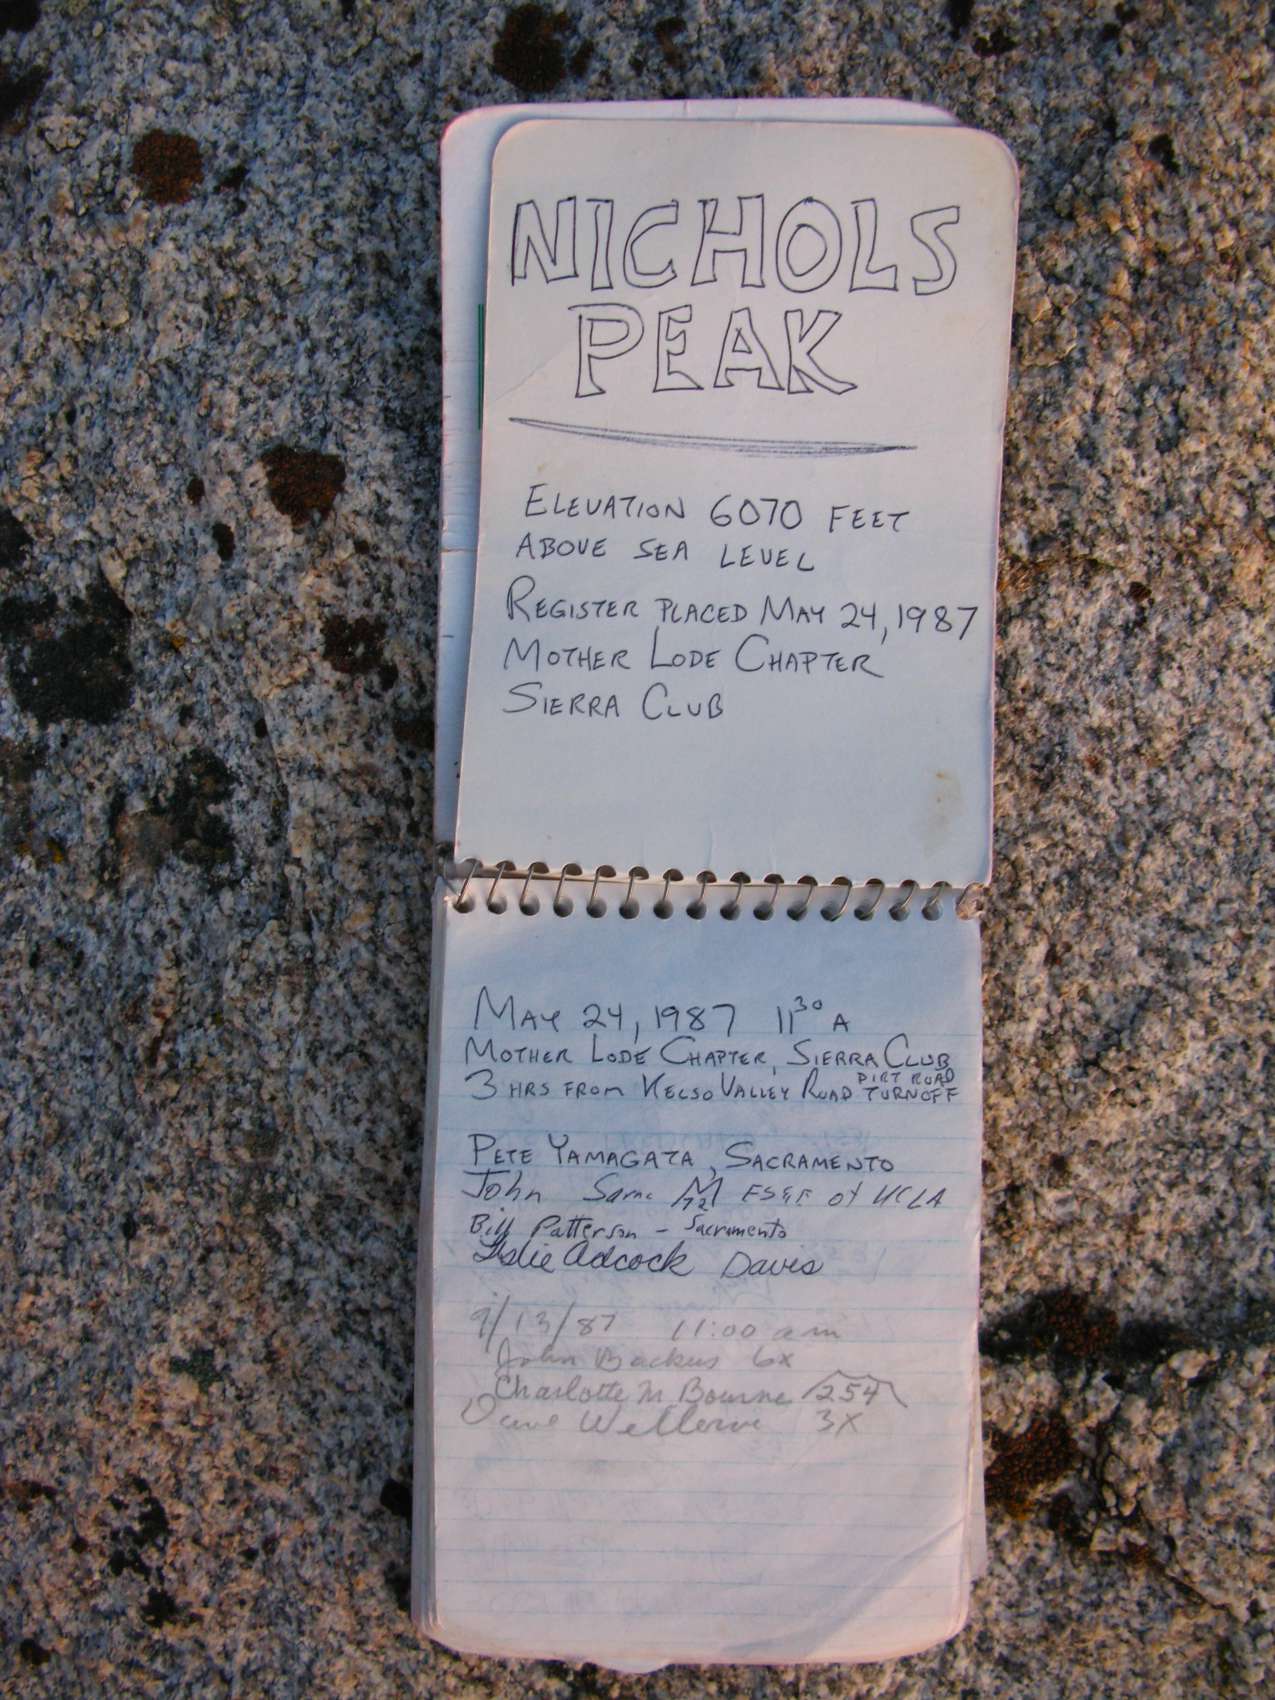 NICHOLS
PEAK
ELEVATION 6070 FEET
ABOVE SEA LEVEL
REGISTER PLACED MAY 24, 1987
MOTHER LODE CHAPTER
SIERRA CLUB
MAY 24, 1987 11 30 A
MOTHER LODE CHAPTER, SIERRA CLUB
3 HRS FROM KELSO VALLEY ROAD DIRT ROAD TURNOFF
PETE YAMAGATA, SACRAMENTO
John of UCLA
Bill Patterson - Sacramento
Leslie Adcock Davis
9/13/87 11:00 am
John Backus 6x
Charlotte M Bourne 254
Dave 3X